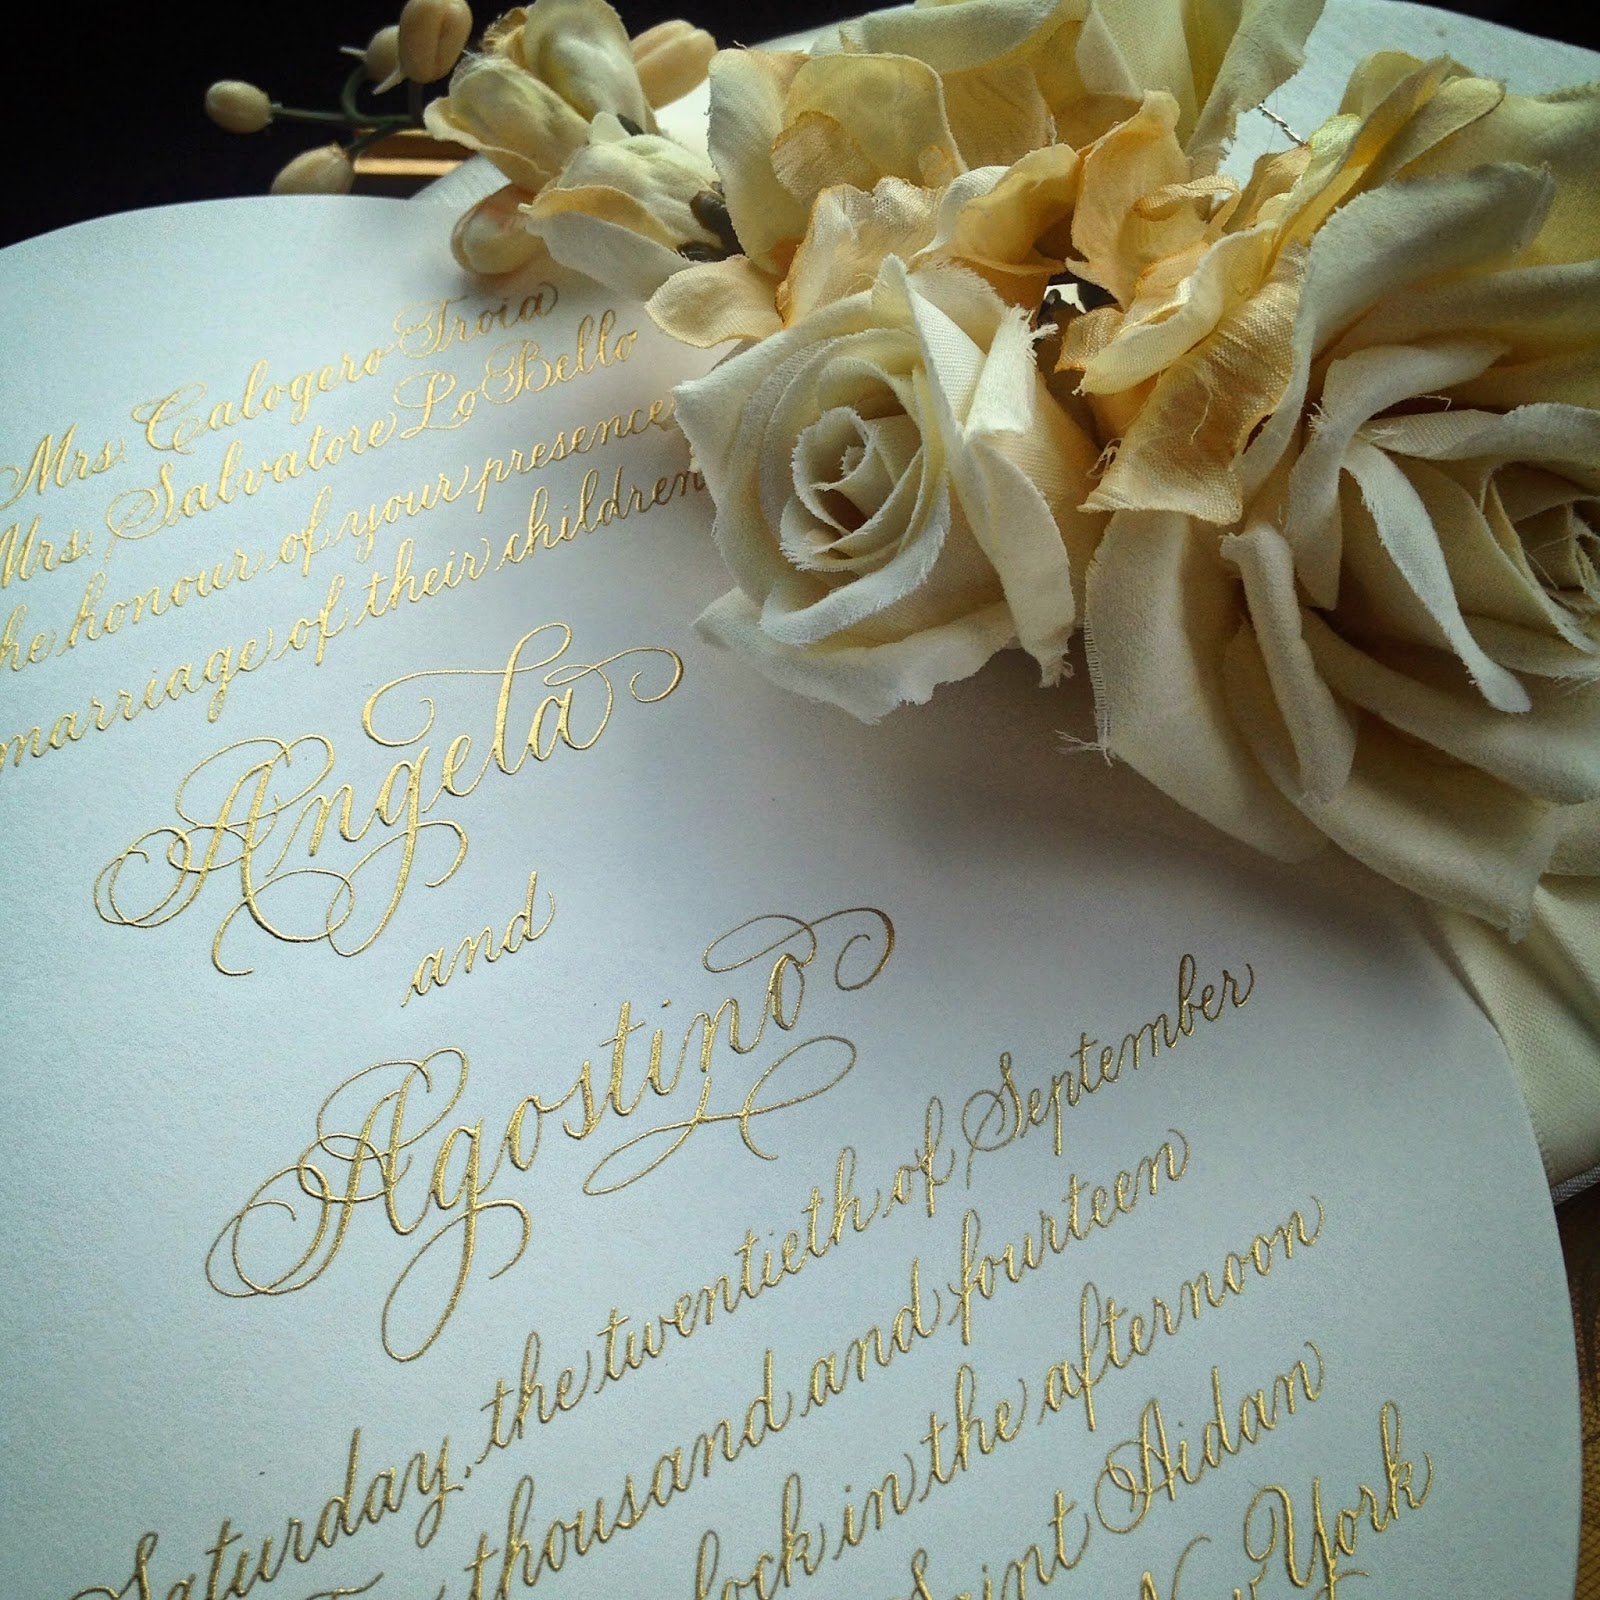 Mrs. Calogero Troia
Mrs. Salvatore LoBello
the honour of your presence
marriage of their children
Angela
and
Agostino
Saturday, the twentieth of September
thousand and fourteen
in the afternoon
Saint Aidan
New York